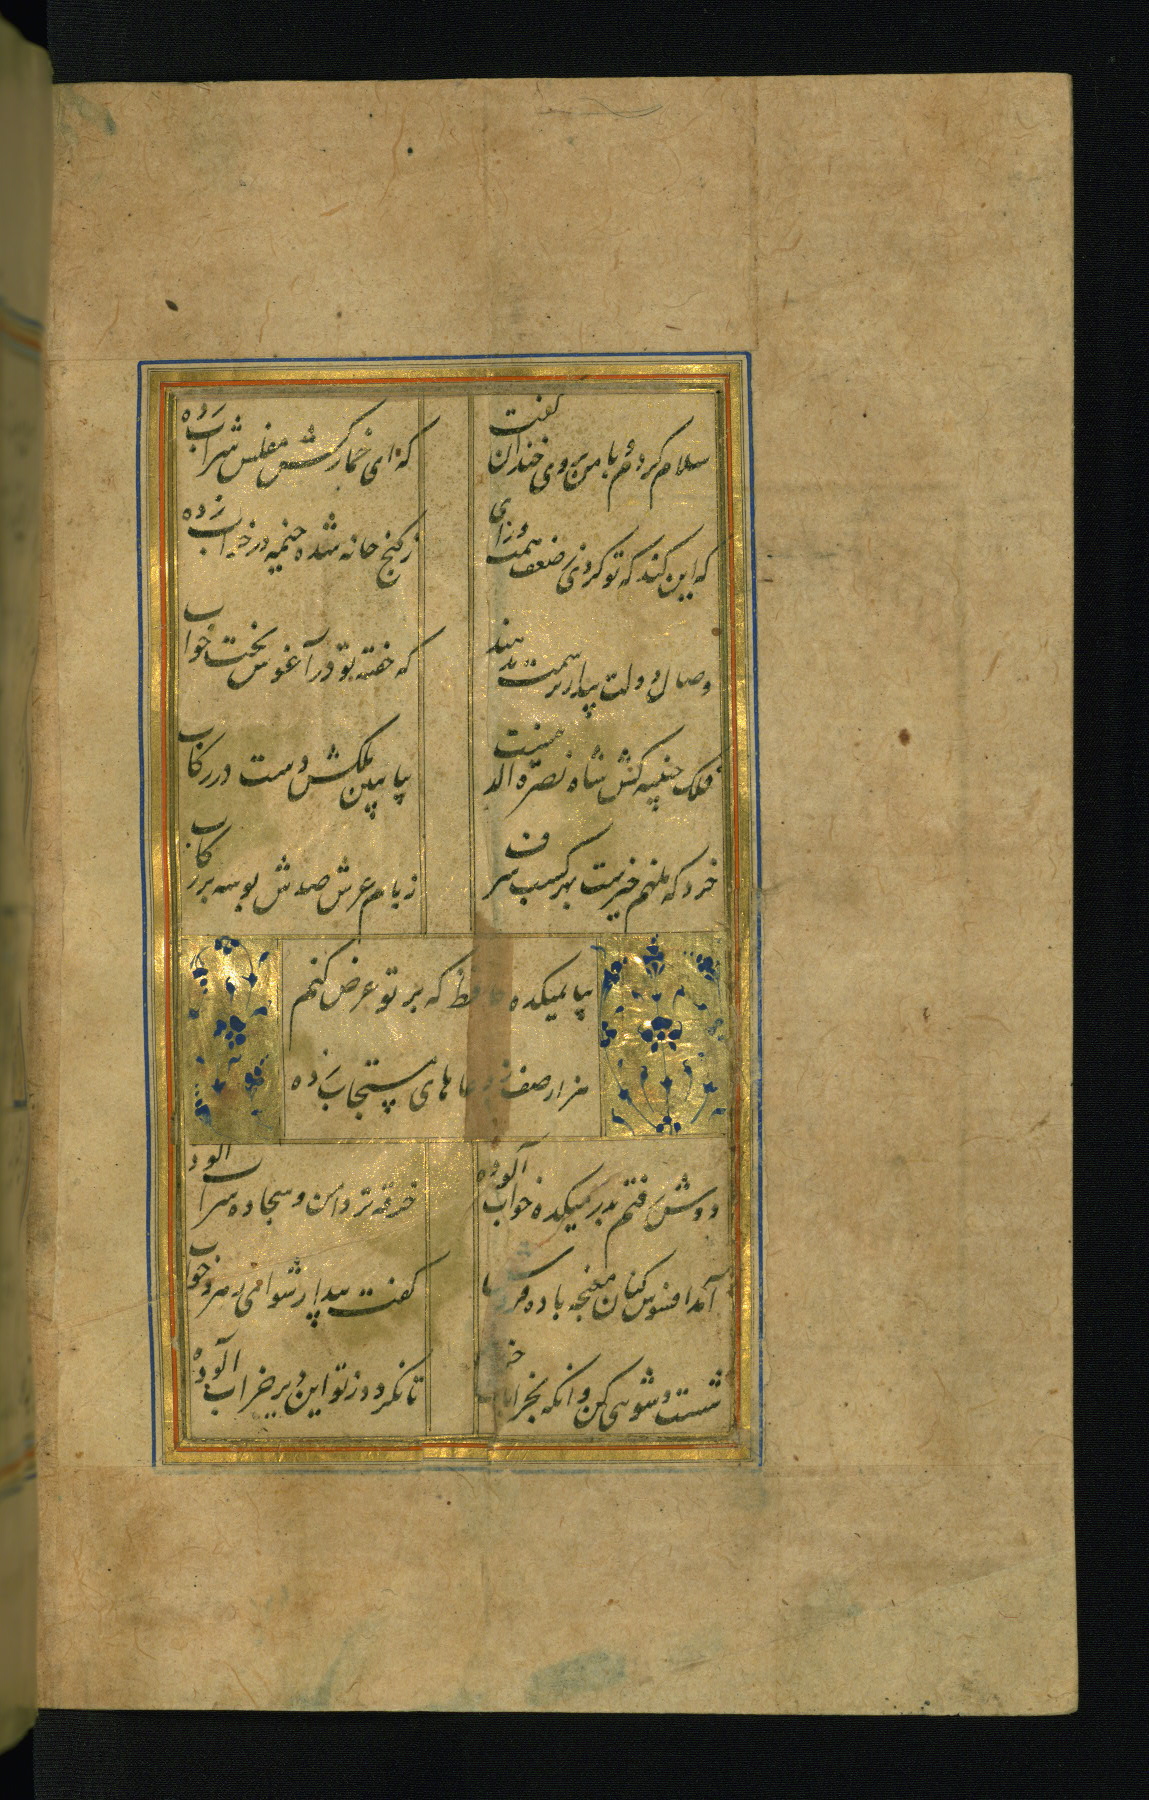 سلام کردم و با من بروی خندان گفت
که ای خمارکش مفلس شراب زده
که این کند که تو کردی ز ضعف همت و رای
ز کنج خانه شده خیمه در خراب زده
وصال دولت بیدار ترسمت ندهند
که خفته تو در آغوش بخت خواب
فلک جنیبه کش شاه نصرة الدینست
بیا ببین ملکش دست در رکاب
خرد که ملهم غیبست بهر کسب شرف
ز بام عرش صدش بوسه بر رکاب
بیا بمیکده حافظ که بر تو عرض کنم
هزار صف ز دعاهای مستجاب زده
دوش رفتم بدر میکده خواب آلوده
خرقه تر دامن و سجاده شراب آلود
آمد افسوس کنان مغبچه باده فروش
گفت بیدار شو ای رهرو خواب
شست و شوئی کن و انکه بخرابات خرام
تا نکردد ز تو این دیر خراب آلوده